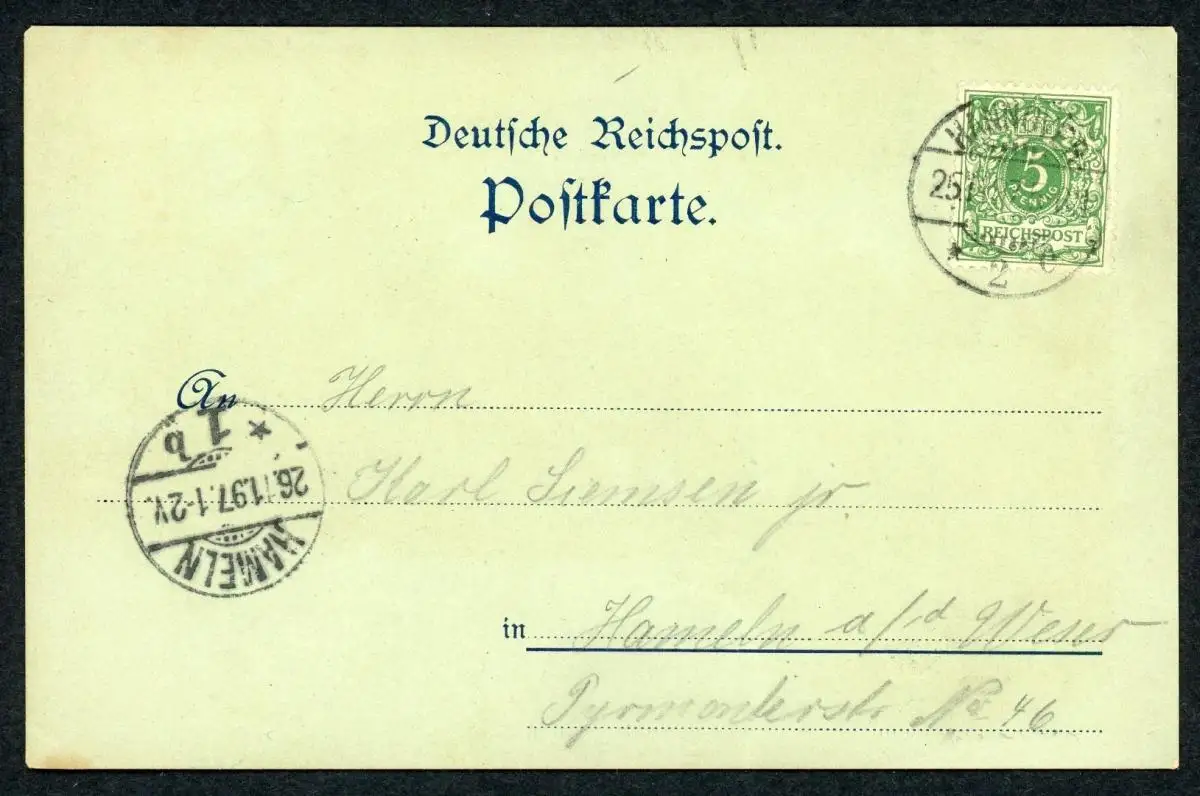 Deutsche Reichspost.
Postkarte.
HANNOVER
25
2
5
PFENNIG
REICHSPOST
An Herrn
Karl Siemsen jr
in Hameln a/d Weser
Pyrmonterstr No 46.
HAMELN
26.11.97.1-2V.
1 b